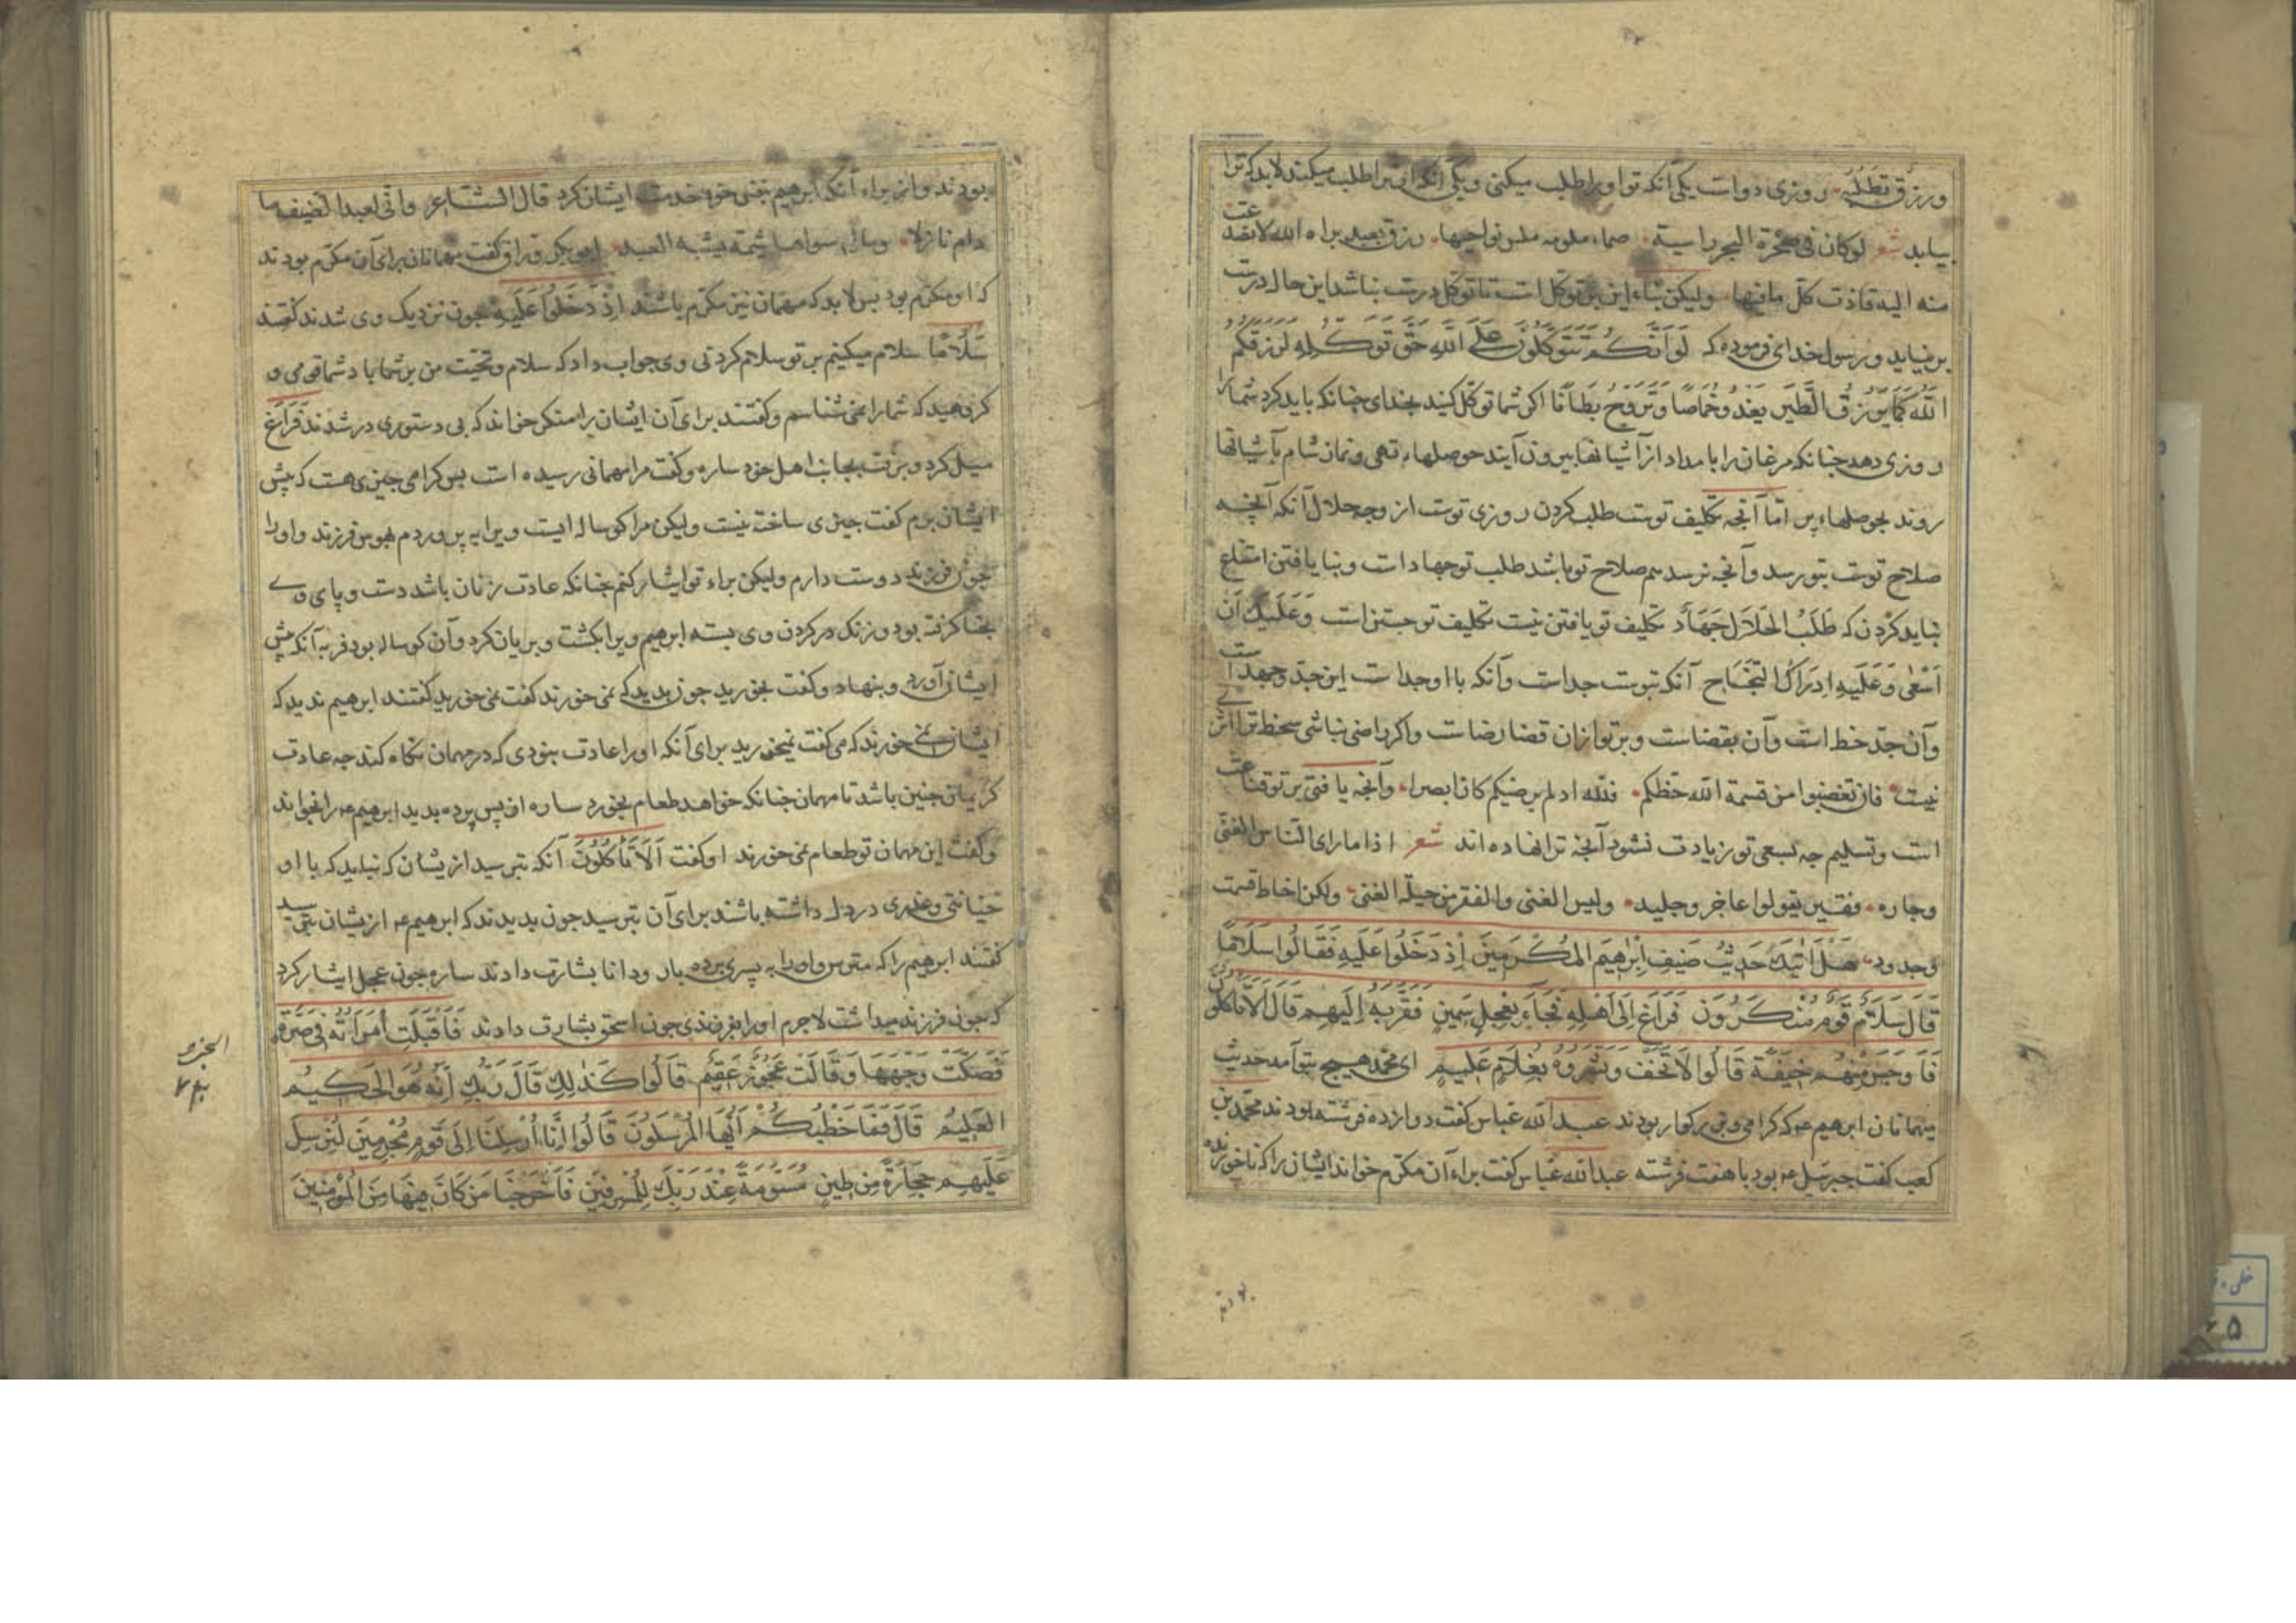 ورزق تطلبه روزی دواست یکی آنکه تو او را طلب میکنی ویکی آنکه او ترا طلب میکند لابد که ترا
بیابد شعر لوکان فی صخرة البحر راسیة صماء ملومه ملس نواحیها رزق بعبد براه الله لانصدعت
منه الیه فاذت کل مافیها ولیکن بناء این بر توکل است تا توکل درست نباشد این حال درست
بر نیاید ورسول خدای فرموده که لَوْ اَنَّکُمْ تَتَوَکَّلُونَ عَلَی اللّٰهِ حَقَّ تَوَکُّلِهِ لَرَزَقَکُمُ
اللّٰهُ کَمَا یَرْزُقُ الطَّیْرَ یَغْدُو خِمَاصًا وَتَرُوحُ بِطَانًا اکر شما توکل کنید بخدای چنانکه باید کرد شما را
روزی دهد چنانکه مرغان را بامداد از آشیانها بیرون آیند حوصلها تهی ونماز شام بآشیانها
روند بحوصلهاء پر اما آنچه تکلیف توست طلب کردن روزی توست از وجه حلال آنکه آنچه
صلاح توست بتو رسد وآنچه نرسد هم صلاح تو باشد طلب تو جهاد است وبنا یافتن امتناع
نباید کردن که طَلَبُ الحَلَالِ جِهَادٌ تکلیف تو یافتن نیست تکلیف تو جستن است وَعَلَیْكَ اَنْ
اَسْعٰی وَعَلَیْهِ اِدْرَاكُ النَّجَاحِ آنکه بتوست جداست وآنکه با او جداست این جدّ وجهد است
وآن جدّ حظ است وآن بقضاست وبر تو ازان قضا رضاست واکر راضی نباشی سخط ترا اثری
نیست فان تغضبوا من قسمة الله حظکم فلله اد لم یرضیکم کان ابصرا وآنچه یافتی بر تو قناعت
است وتسلیم چه بسعی تو زیادت نشود آنچه ترا نهاده اند شعر اذا ما رای الناس الغنی
وجاره فقیر یقولوا عاجز وجلید ولیس الغنی والفقر من حیلة الغنی ولکن احاط قسمت
وجدود هَلْ اَتٰیكَ حَدِیثُ ضَیْفِ اِبْرٰهِیمَ المُکْرَمِینَ اِذْ دَخَلُوا عَلَیْهِ فَقَالُوا سَلَامًا
قَالَ سَلَامٌ قَوْمٌ مُنْکَرُونَ فَرَاغَ اِلَی اَهْلِهِ فَجَاءَ بِعِجْلٍ سَمِینٍ فَقَرَّبَهُ اِلَیْهِمْ قَالَ اَلَا تَأْکُلُونَ
فَاَوْجَسَ مِنْهُمْ خِیفَةً قَالُوا لَا تَخَفْ وَبَشَّرُوهُ بِغُلَامٍ عَلِیمٍ ای محمد هیچ بتو آمد حدیث
میهمانان ابرهیم عم که کرامی وبزرکوار بودند عبد الله عباس کفت دوازده فرشته بودند محمد بن
کعب کفت جبرئیل عم بود با هفت فرشته عبد الله عباس کفت براء آن مکرم خواند ایشان را که ناخوانده
بودند
بودند واز براء آنکه ابرهیم بنفس خود خدمت ایشان کرد قال الشاعر وانی لعبد الضیف ما
دام نازلا وما لی سواها شیمة یشبه العبد ابو بکر وراق کفت میهمانان برای آن مکرم بودند
که او مکرم بود پس لابد که مهمان نیز مکرم باشند اِذْ دَخَلُوا عَلَیْهِ چون نزدیک وی شدند کفتند
سَلَامًا سلام میکنیم بر تو سلام کردنی وی جواب داد که سلام وتحیّت من بر شما باد شما قومی و
کروهید که شما را نمی شناسم وکفتند برای آن ایشان را منکر خواند که بی دستوری در شدند فَرَاغَ
میل کرد وبرفت بجانب اهل خود ساره وکفت مرا مهمانی رسیده است بس کرامی چیزی هست که پیش
ایشان برم کفت چیزی ساخته نیست ولیکن مرا کوساله ایست ویرا به پروردم بهوس فرزند واو را
چون فرزند دوست دارم ولیکن براء تو ایثار کنم چنانکه عادت زنان باشد دست وپای وی
بحنا کرفته بود وزنک در کردن وی بسته ابرهیم ویرا بکشت وبریان کرد وآن کوساله بود فربه آنکه پیش
ایشان آورد وبنهاد وکفت بخورید چون بدید که نمی خورند کفت نمی خورید کفتند ابرهیم ندید که
ایشان نمی خورند که می کفت نمیخورید برای آنکه او را عادت نبودی که در مهمان نکاه کند چه عادت
کریمان چنین باشد تا مهمان چنانکه خواهد طعام بخورد ساره از پس پرده بدید ابرهیم عم را بخواند
وکفت این مهمان تو طعام نمی خورند او کفت اَلَا تَأْکُلُونَ آنکه بترسید ازیشان که نباید که با او
خیانتی وغدری در دل داشته باشند برای آن بترسید چون بدیدند که ابرهیم عم ازیشان بترسید
کفتند ابرهیم را که مترس واو را به پسری برده بار ودانا بشارت دادند ساره چون عجل ایثار کرد
که چون فرزند میداشت لاجرم او را بفرزندی چون اسحق بشارت دادند فَاَقْبَلَتِ امْرَاَتُهُ فِی صَرَّةٍ
فَصَکَّتْ وَجْهَهَا وَقَالَتْ عَجُوزٌ عَقِیمٌ قَالُوا کَذٰلِكِ قَالَ رَبُّكِ اِنَّهُ هُوَ الحَکِیمُ
العَلِیمُ قَالَ فَمَا خَطْبُکُمْ اَیُّهَا المُرْسَلُونَ قَالُوا اِنَّا اُرْسِلْنَا اِلَی قَوْمٍ مُجْرِمِینَ لِنُرْسِلَ
عَلَیْهِمْ حِجَارَةً مِنْ طِینٍ مُسَوَّمَةً عِنْدَ رَبِّكَ لِلْمُسْرِفِینَ فَاَخْرَجْنَا مَنْ کَانَ فِیهَا مِنَ المُؤْمِنِینَ
الجزء